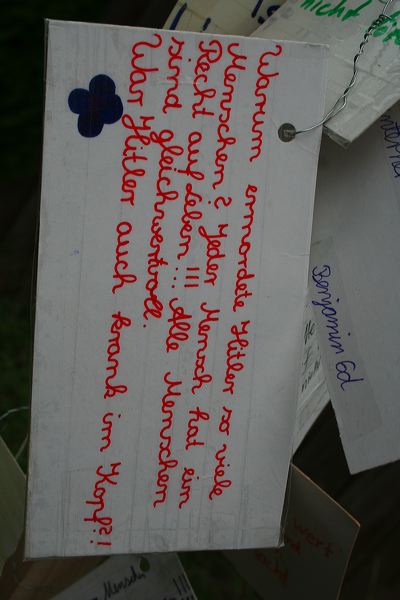 Warum ermordete Hitler so viele
Menschen? Jeder Mensch hat ein
Recht auf Leben!!! Alle Menschen
sind gleichwertvoll.
War Hitler auch krank im Kopf?!
Benjamin Gd
nicht
wert
Menschen